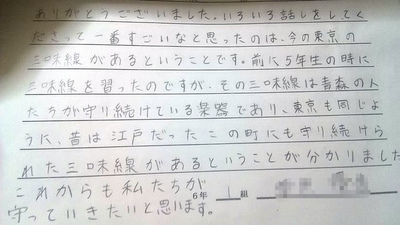 ありがとうございました。いろいろ話しをしてく
ださって一番すごいなと思ったのは、今の東京の
三味線があるということです。前に5年生の時に
三味線を習ったのですが、その三味線は青森の人
たちが守り続けている楽器であり、東京も同じよ
うに、昔は江戸だったこの町にも守り続けら
れた三味線があるということが分かりました
これからも私たちが
守っていきたいと思います。
6年 1組